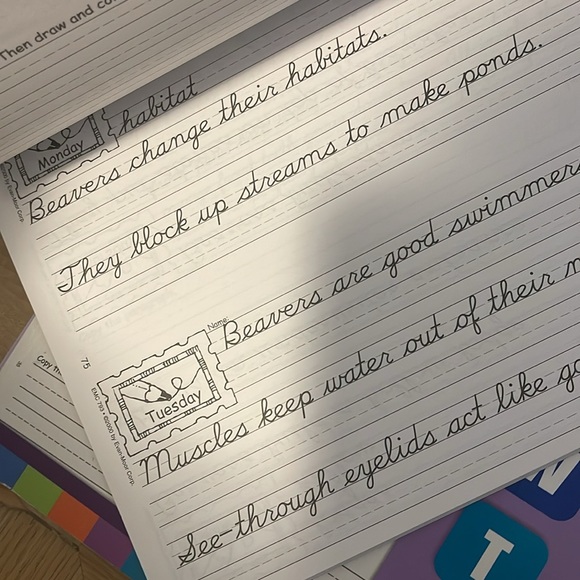 Then draw and
habitat
Monday
Beavers change their habitats.
They block up streams to make ponds.
75
Name:
Beavers are good swimmers
Tuesday
Muscles keep water out of their
See-through eyelids act like
EMC 793 • ©2000 by Evan-Moor Corp.
by Evan-Moor Corp.
Copy
T